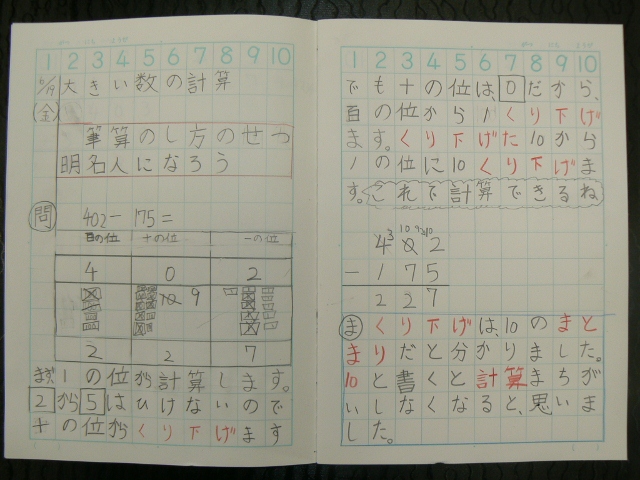 1 2 3 4 5 6 7 8 9 10
6/19 大きい数の計算
(金)
筆算のし方のせつ
明名人になろう
問 402-175=
百の位 十の位 一の位
4 0 2
10 9
2 2 7
まず1の位から計算します。
2から5はひけないので
十の位からくり下げます
1 2 3 4 5 6 7 8 9 10
でも十の位は、0だから、
百の位から1くり下げ
ます。くり下げた10から
1の位に10くり下げま
す。これで計算できるね
3 10 9 10
402
-175
227
ま くり下げは、10のまと
まりだと分かりました。
10と書くと計算まちが
いしなくなると、思いま
した。